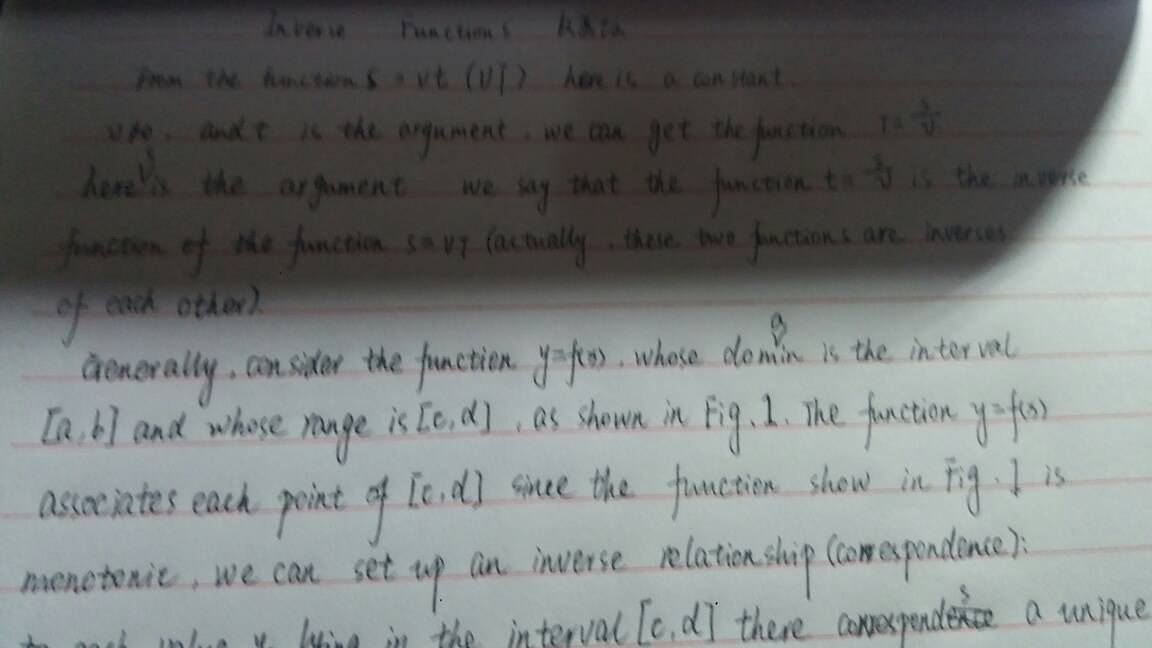 Inverse Functions
From the function s = vt (v) here is a constant.
v≠0, and t is the argument, we can get the function T = s/v
here s is the argument we say that the function t = s/v is the inverse
function of the function s = vT (actually, these two functions are inverses
of each other).
Generally, consider the function y=f(x), whose domain is the interval
[a,b] and whose range is [c,d], as shown in Fig.1. The function y=f(x)
associates each point of [c,d] since the function show in Fig.1 is
monotonic, we can set up an inverse relationship (correspondence):
to each value y lying in the interval [c,d] there corresponds a unique